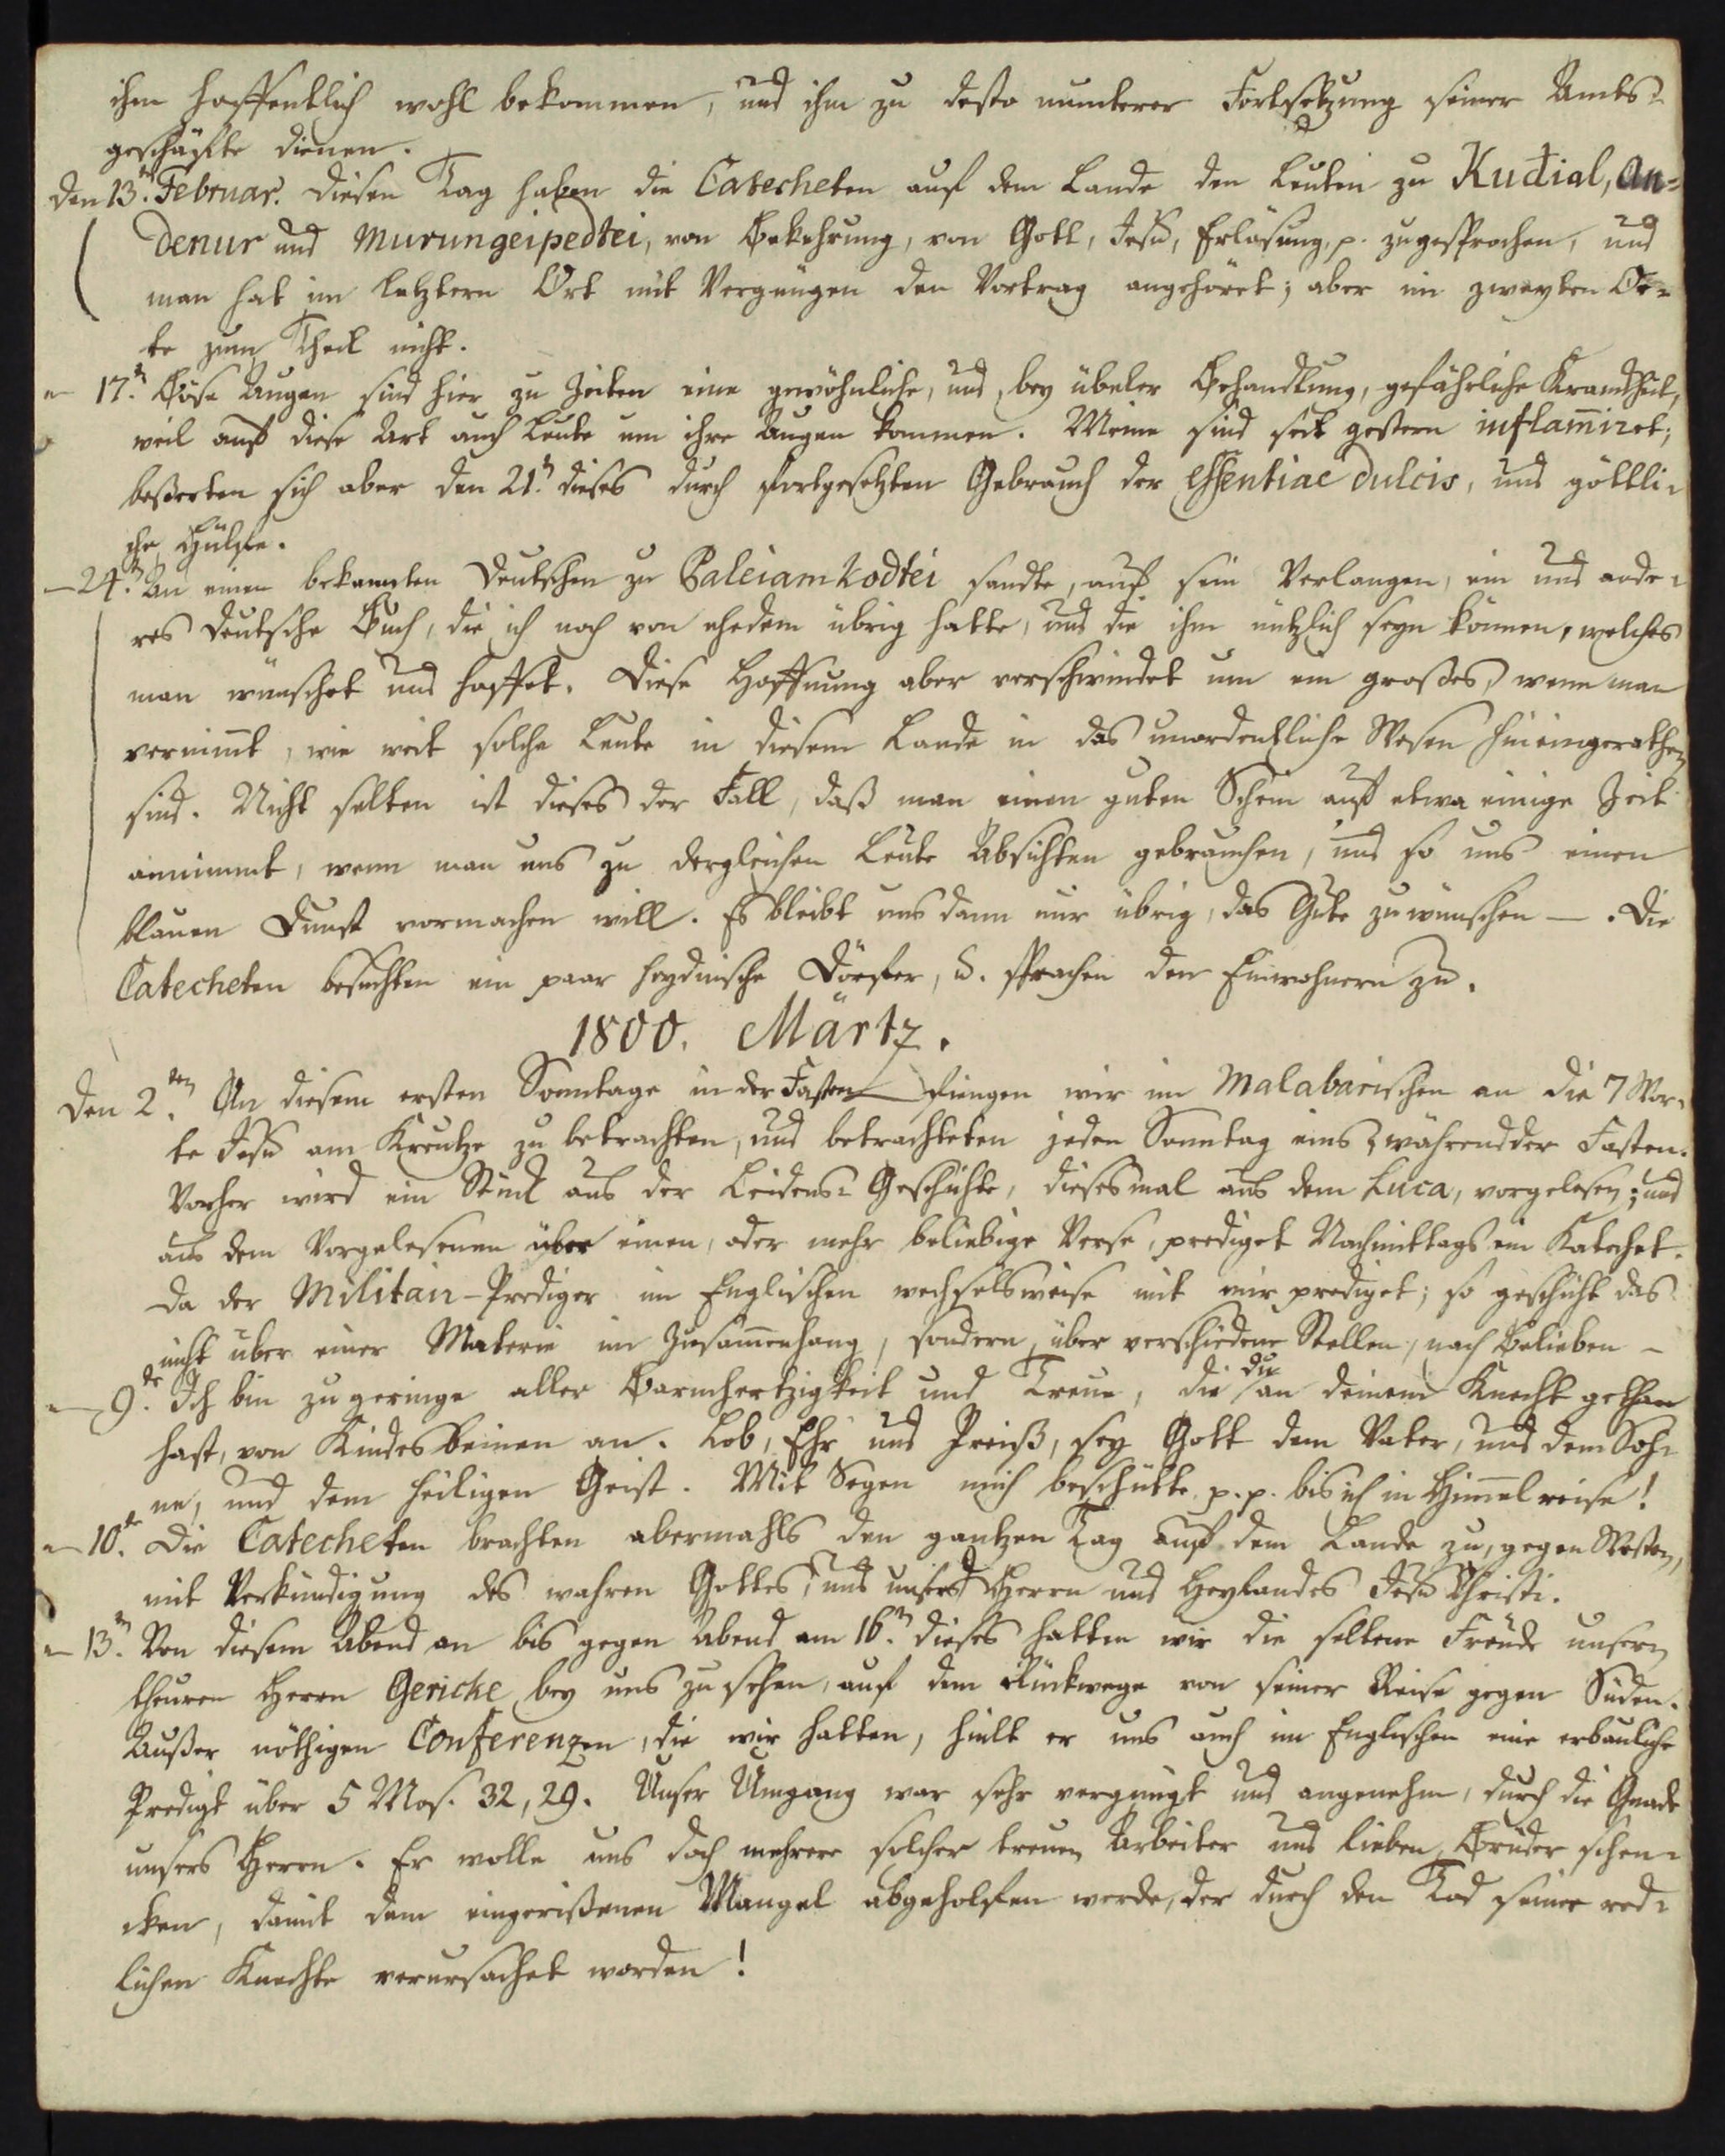 ihm hoffentlich wohl bekommen, und ihm zu desto munterer Fortsetzung seiner Amts-
geschäfte dienen.
Den 13.n Februar. Diesen Tag haben die Catecheten auf dem Lande den Leuten zu Kudial, An-
denur und Murungeipedtei, von Bekehrung, von Gott, Jesu, Erlösung, p. zugesprochen, und
man hat im letztern Ort mit Vergnügen den Vortrag angehöret; aber im zweyten Or-
te zum Theil nicht.
— 17.n Böse Augen sind hier zu Zeiten eine gewöhnliche, und, bey übeler Behandlung, gefährliche Kranckheit,
weil auf diese Art auch Leute um ihre Augen kommen. Meine sind seit gestern inflam̄iret;
beßerten sich aber den 21.n dieses durch fortgesetzten Gebrauch der Essentiae dulcis, und göttli-
che Hülfe.
— 24.n An einen bekannten Deutschen zu Paleiamkodtei sandte, auf sein Verlangen, ein und ande-
res deutsche Buch, die ich noch von ehedem übrig hatte, und die ihm nützlich seyn können, welches
man wünschet und hoffet. Diese Hoffnung aber verschwindet um ein großes, wenn man
vernim̄t, wie weit solche Leute in diesem Lande in das unordentliche Wesen hineingerathen
sind. Nicht selten ist dieses der Fall, daß man einen guten Schein auf etwa einige Zeit
annimmt, wenn man uns zu dergleichen Leute Absichten gebrauchen, und so uns einen
blauen Dunst vormachen will. Es bleibt uns dann nur übrig, das Gute zu wünschen —. Die
Catecheten besuchten ein paar heydnische Dörfer, u. sprachen den Einwohnern zu.
1800. Märtz.
Den 2.ten An diesem ersten Sonntage in der Fasten fiengen wir im Malabarischen an die 7 Wor-
te Jesu am Kreutze zu betrachten, und betrachteten jeden Sonntag eins, während der Fasten.
Vorher wird ein Stück aus der Leidens-Geschichte, diesesmal aus dem Luca, vorgelesen; und
aus dem Vorgelesenen über einen, oder mehr beliebige Verse, prediget Nachmittags ein Katechet.
Da der Militair-Prediger im Englischen wechselsweise mit mir prediget; so geschicht das
nicht über einer Materie im Zusam̄enhang, sondern, über verschiedene Stellen, nach Belieben —
— 9.te Ich bin zu geringe aller Barmhertzigkeit und Treue, die du an deinem Knecht gethan
hast, von Kindesbeinen an. Lob, Ehr und Preiß, sey Gott dem Vater, und dem Soh-
ne, und dem heiligen Geist. Mit Segen mich beschütte p.p. bis ich in Him̄el reise!
— 10.te Die Catecheten brachten abermahls den gantzen Tag auf dem Lande zu, gegen Westen,
mit Verkündigung des wahren Gottes, und unsers Herrn und Heylandes Jesu Christi.
— 13.n Von diesem Abend an bis gegen Abend am 16.n dieses hatten wir die seltene Freude unsern
theuren Herrn Gericke bey uns zu sehen, auf dem Rückwege von seiner Reise gegen Süden.
Außer nöthigen Conferenzen, die wir hatten, hielt er uns auch im Englischen eine erbauliche
Predigt über 5 Mos. 32, 29. Unser Umgang war sehr vergnügt und angenehm, durch die Gnade
unsers Herrn. Er wolle uns doch mehrere solcher treuen Arbeiter und lieben Brüder schen-
cken, damit dem eingerißenen Mangel abgeholfen werde, der durch den Tod seiner red-
lichen Knechte verursachet worden!